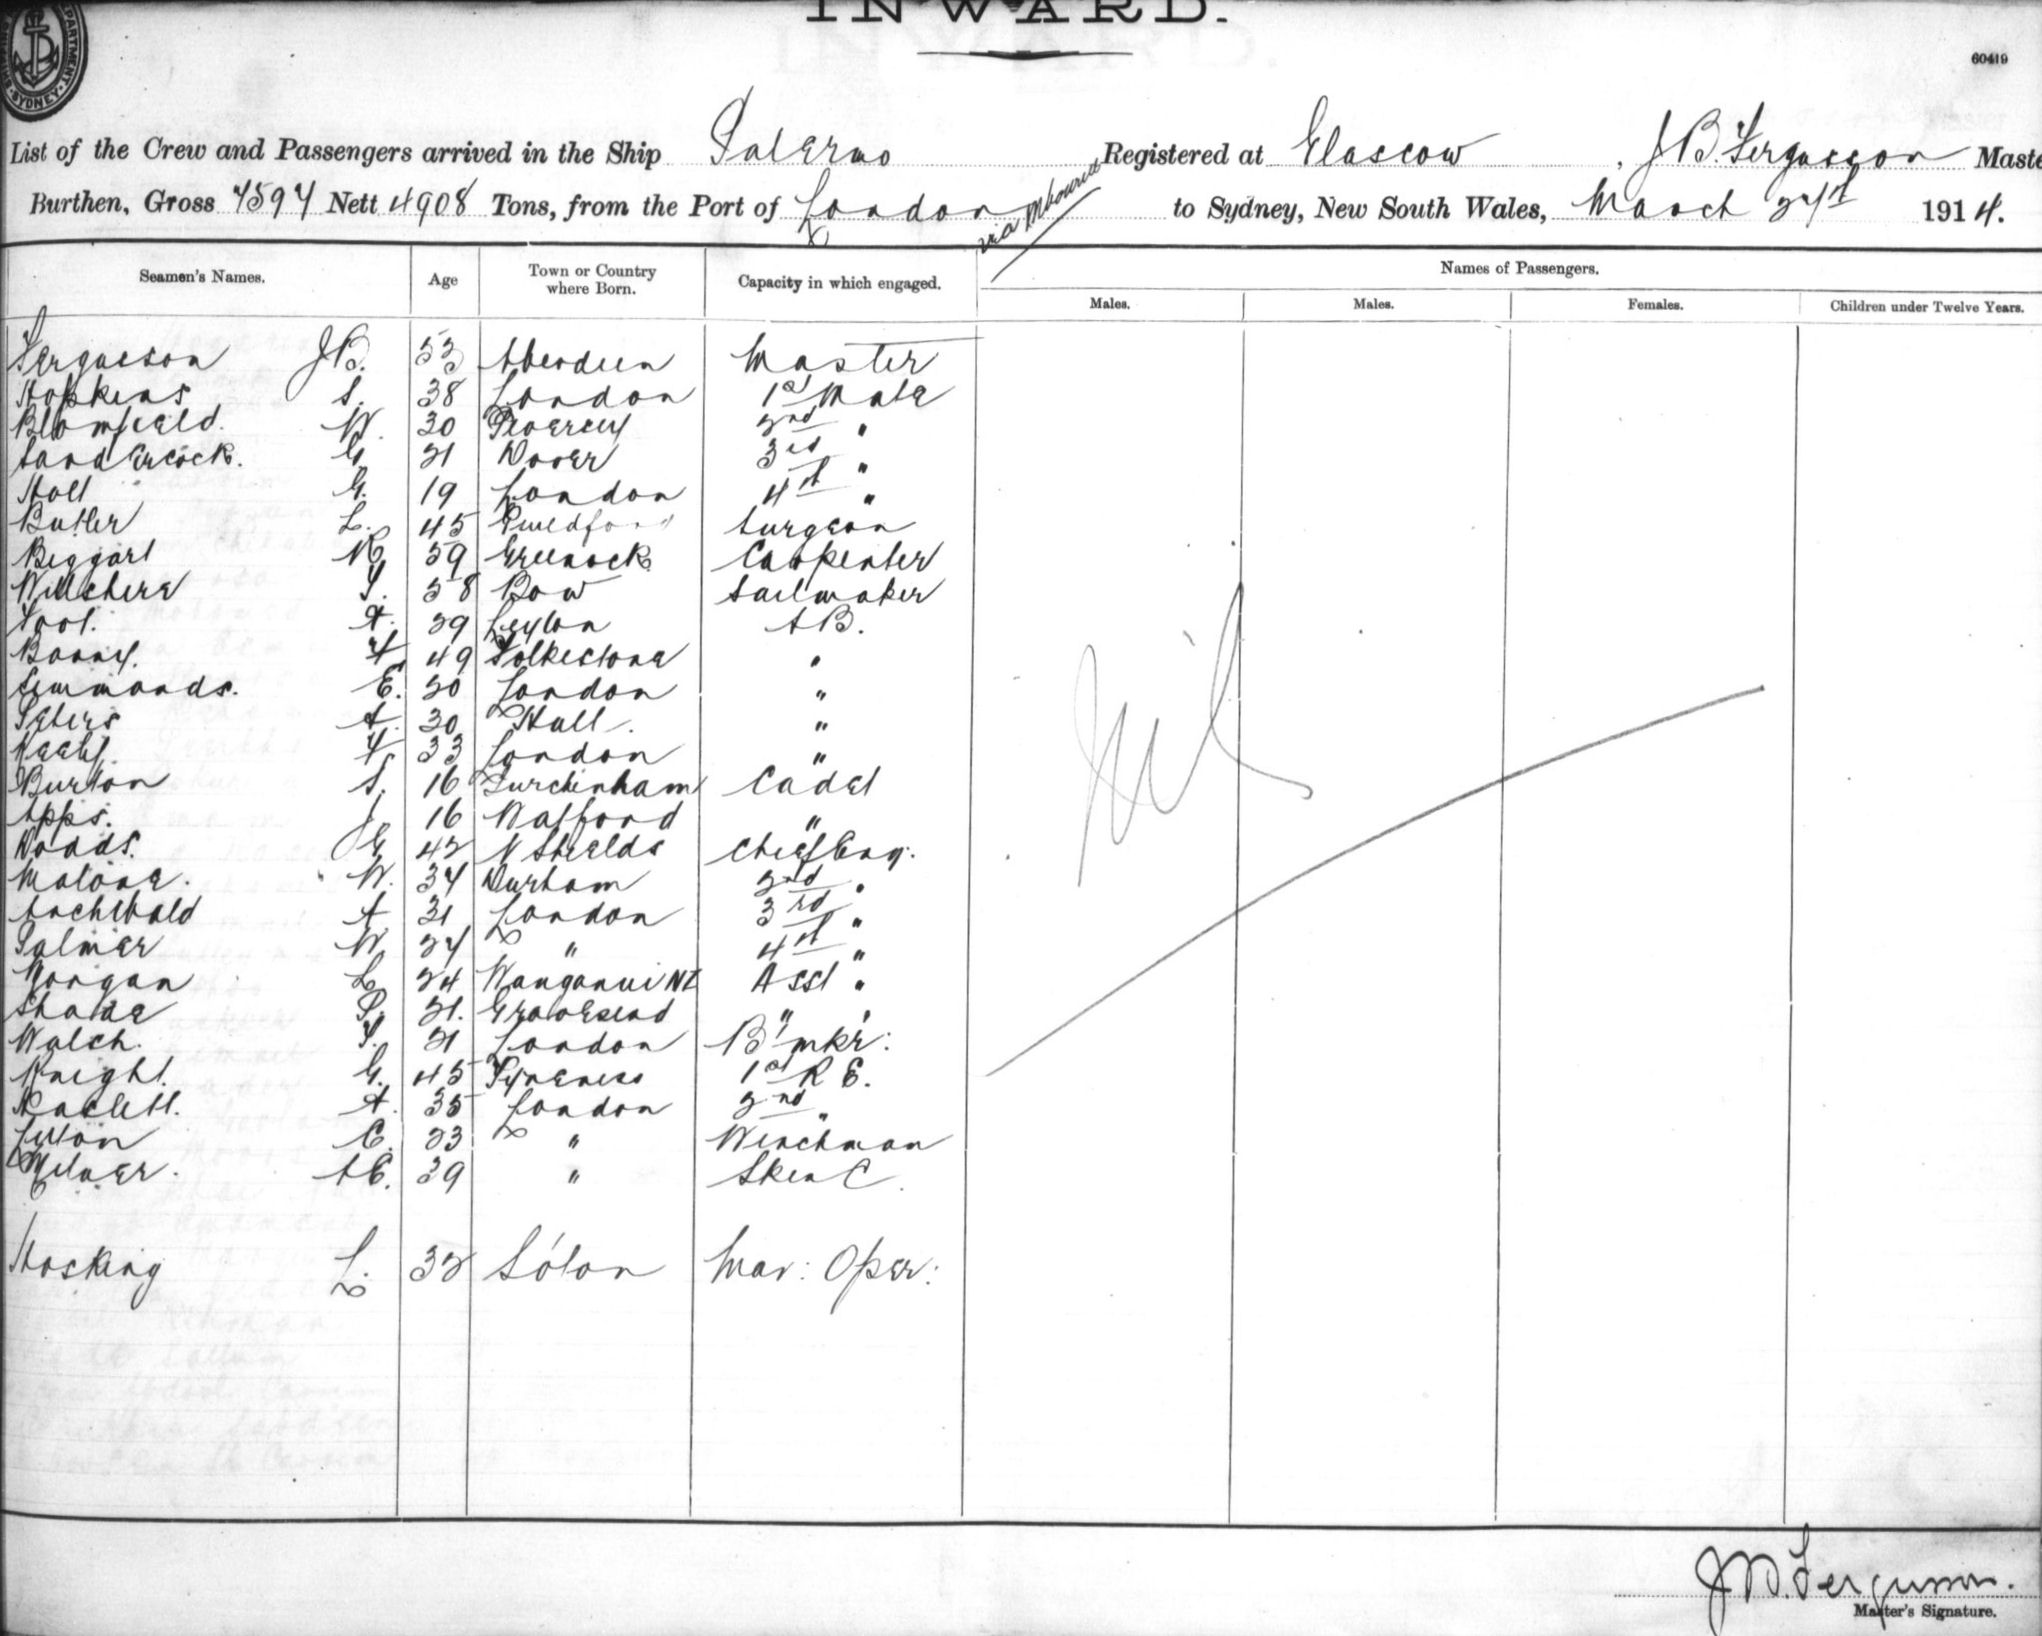 INWARD.
60419
SYDNEY
List of the Crew and Passengers arrived in the Ship Palermo Registered at Glascow, J B. Fergusson Maste
Burthen, Gross 7597 Nett 4908 Tons, from the Port of London via Mbourne to Sydney, New South Wales, March 27th 1914.
Seamen's Names. Age Town or Country where Born. Capacity in which engaged. Names of Passengers.
Males. Males. Females. Children under Twelve Years.
Fergusson J B. 53 Aberdeen Master
Hopkins S. 38 London 1st Mate
Blomfield. W. 30 2nd "
Sandercock. G 21 Dover 3rd "
Holt G. 19 London 4th "
Butler L. 45 Guildford Surgeon
Beggart R 59 Greenock Carpenter
Willshere T. 58 Bow Sailmaker
A. 29 Leyton AB.
Bonny. F 49 Folkestone "
Simmonds. E. 20 London "
Peters A. 30 Hull. "
Neely. F 33 London "
Burton S. 16 Cadet
Apps. J 16 Watford "
Dodds. G 42 N Shields Chief Eng.
Malone. W. 34 Durham 2nd "
Archibald A 31 London 3rd "
Palmer W. 27 " 4th "
Morgan L 24 Wanganui NZ Asst "
Shade P. 21. Gravesend " "
Walch. T. 21 London B'mkr:
Knight. G. 45 1st R E.
A. 35 London 2nd "
Luton C. 23 " Winchman
Milner. A E. 39 " Sken C.
Hosking L. 32 Mar: Oper:
Nil
J B. Fergusson.
Master's Signature.